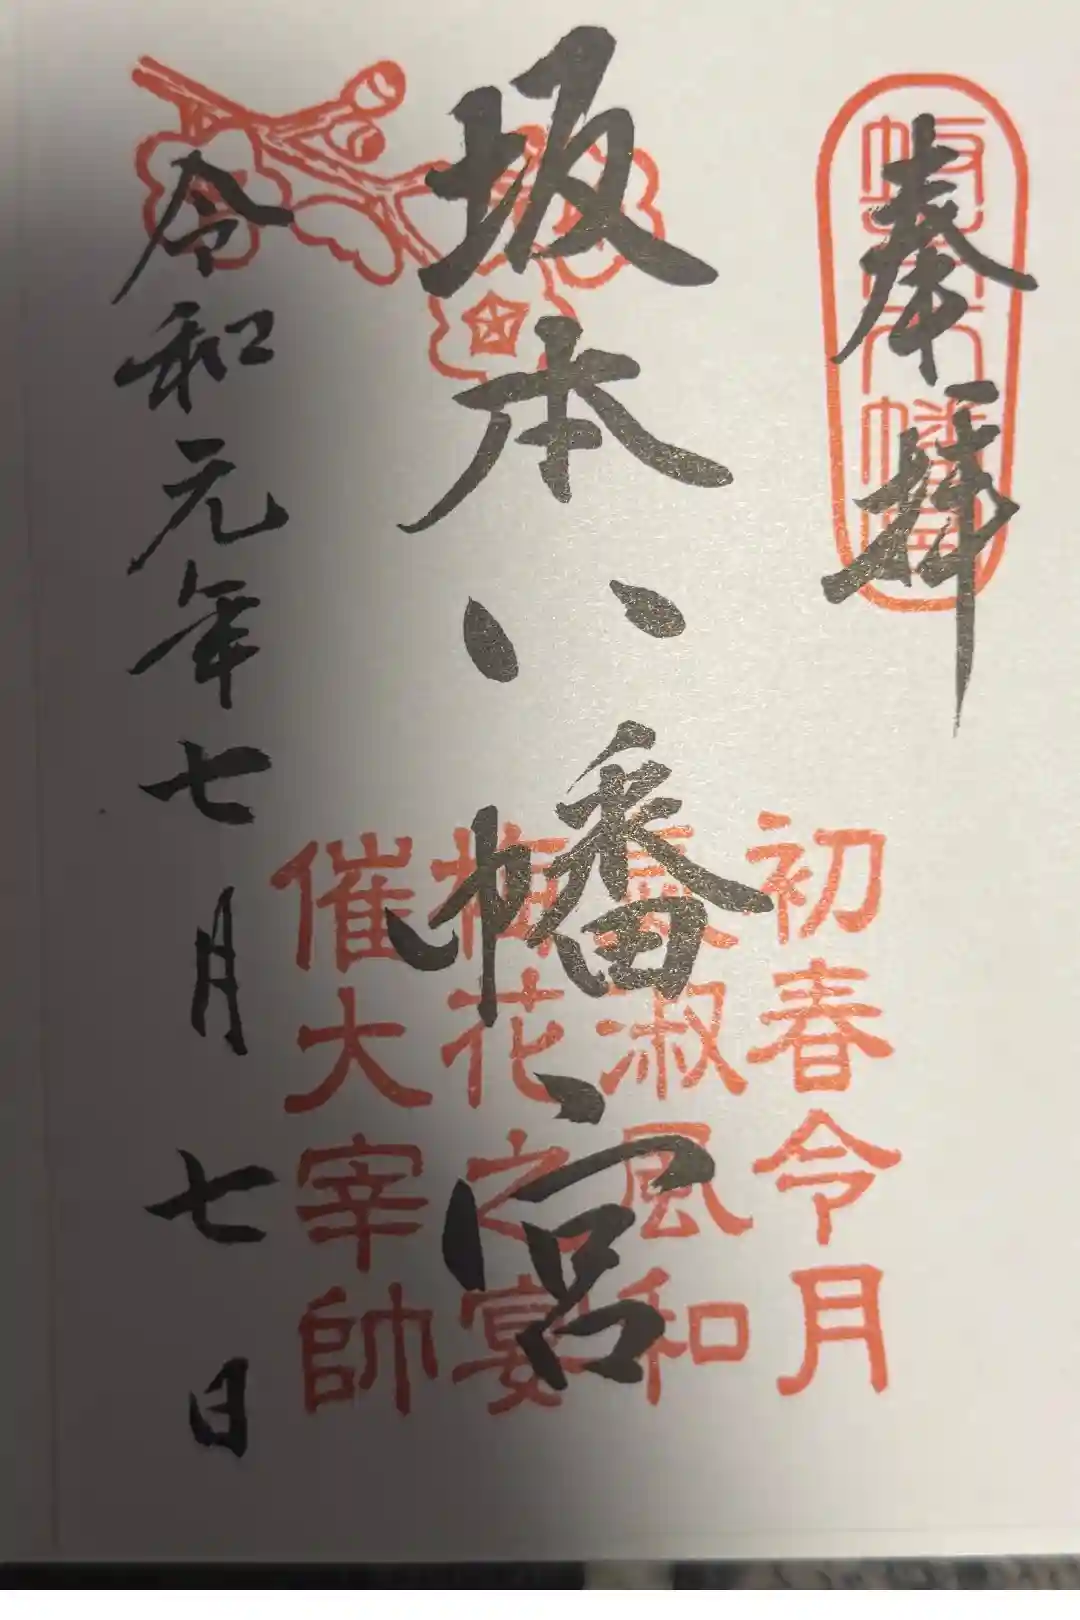 奉拝
坂本八幡宮
初春令月
淑風和
梅花之宴
催大宰帥
令和元年七月七日